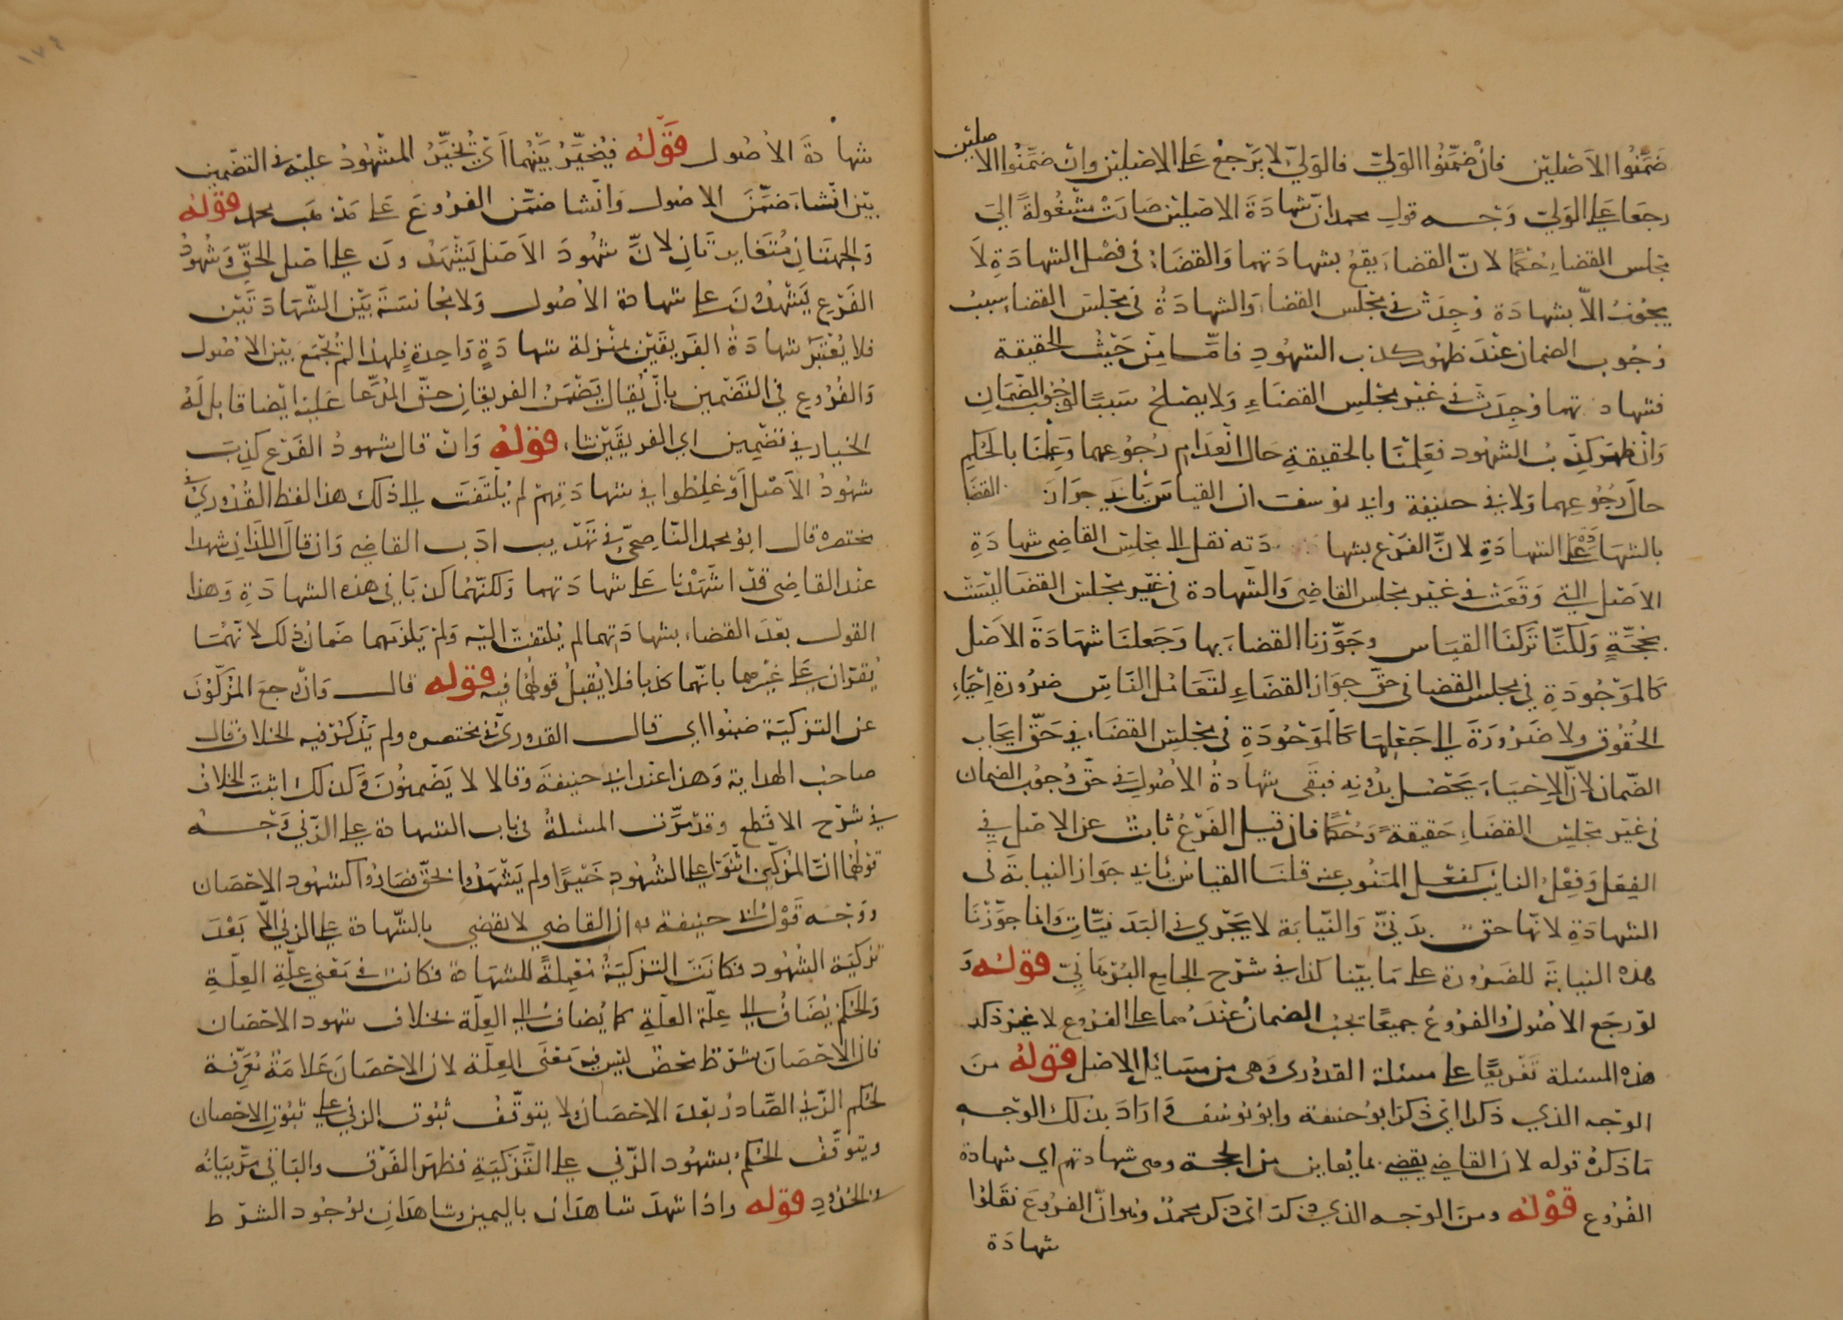 ضمنوا الاصليين فان ضمنوا الولي فالولي لا يرجع على الاصليين وان ضمنوا الاصليين
رجعا على الولي وجه قول محمد ان شهادة الاصليين صارت منقولة الى
مجلس القضاء حكما لان القضاء يقع بشهادتهما والقضاء في فصل الشهادة لا
يجوز الا بشهادة وجدت في مجلس القضاء والشهادة في مجلس القضاء سبب
وجوب الضمان عند ظهور كذب الشهود فاما من حيث الحقيقة
فشهادتهما وجدت في غير مجلس القضاء ولا يصلح سببا لوجوب الضمان
وان ظهر كذب الشهود فعملنا بالحقيقة حال انعدام رجوعهما وعملنا بالحكم
حال رجوعهما ولابي حنيفة وابي يوسف ان القياس يابى جواز القضا
بالشهادة على الشهادة لان الفرع بشهادته نقل الى مجلس القاضي شهادة
الاصل التي وقعت في غير مجلس القاضي والشهادة في غير مجلس القضا ليست
بحجة ولكنا تركنا القياس وجوزنا القضاء بها وجعلنا شهادة الاصل
كالموجودة في مجلس القضا في حق جواز القضاء لتعامل الناس ضرورة احياء
الحقوق ولا ضرورة الى جعلها كالموجودة في مجلس القضاء في حق ايجاب
الضمان لان الاحياء يحصل بدونه فبقى شهادة الاصول في حق وجوب الضمان
في غير مجلس القضاء حقيقة وحكما فان قيل الفرع نائب عن الاصل في
الفعل وفعل النائب كفعل المنوب عنه قلنا القياس يابى جواز النيابة في
الشهادة لانها حق بدني والنيابة لا يجرى في البدنيات وانما جوزنا
هذه النيابة للضرورة على ما بينا كذا في شرح الجامع البرهاني قوله و
لو رجع الاصول والفروع جميعا يجب الضمان عندهما على الفروع لا غير ذكر
هذه المسئلة تفريعا على مسئلة القدورى وهى من مسائل الاصل قوله من
الوجه الذي ذكرا اى ذكر ابو حنيفة وابو يوسف وارادا بذلك الوجه
ما ذكره قوله لان القاضي يقضي بما يعاين من الحجة وهى شهادتهم اي شهادة
الفروع قوله ومن الوجه الذي ذكر اى ذكر محمد وهو ان الفروع نقلوا
شهادة
شهادة الاصول قوله فيخير بينهما اي يخير المشهود عليه في التضمين
بين ان شاء ضمن الاصول وان شا ضمن الفروع على مذهب محمد قوله
والجهتان متغايرتان لان شهود الاصل يشهدون على اصل الحق وشهود
الفرع يشهدون على شهادة الاصول ولا مجانسة بين الشهادتين
فلا يعتبر شهادة الفريقين بمنزلة شهادة واحدة فلهذا لم يجمع بين الاصول
والفروع في التضمين بان يقال يضمن الفريقان حق المدعا عليه ايضا قابل له
الخيار في تضمين اي الفريقين شاء قوله وان قال شهود الفرع كذب
شهود الاصل او غلطوا في شهادتهم لم يلتفت الى ذلك هذا لفظ القدوري في
مختصره قال ابو محمد الناصحي في تهذيب ادب القاضي وان قال اللذان شهدا
عند القاضي قد اشهدنا على شهادتهما ولكنهما كذبا في هذه الشهادة وهذا
القول بعد القضاء بشهادتهما لم يلتفت اليه ولم يلزمهما ضمان ذلك لانهما
يقران على غيرهما بانهما كذبا فلا يقبل قولهما فيه قوله قال وان رجع المزكون
عن التزكية ضمنوا اي قال القدوري في مختصره ولم يذكر فيه الخلاف قال
صاحب الهداية وهذا عند ابي حنيفة وقالا لا يضمنون وكذلك اثبت الخلاف
في شرح الاقطع وقد مرت المسئلة في باب الشهادة على الزني وجه
قولهما ان المزكين اثنوا على الشهود خيرا ولم يشهدوا بحق فصاروا كشهود الاحصان
ووجه قول ابي حنيفة ان القاضي لا يقضي بالشهادة على الزني الا بعد
تزكية الشهود فكانت التزكية معملة للشهادة فكانت في معني علة العلة
والحكم يضاف الى علة العلة كما يضاف الى العلة بخلاف شهود الاحصان
فان الاحصان شرط محض ليس فيه معنى العلة لان الاحصان علامة معرفة
لحكم الزني الصادر بعد الاحصان ولا يتوقف ثبوت الزني على ثبوت الاحصان
ويتوقف الحكم بشهود الزني على التزكية فظهر الفرق والباقي مر بيانه
في الحدود قوله واذا شهد شاهدان باليمين وشاهدان لوجود الشرط